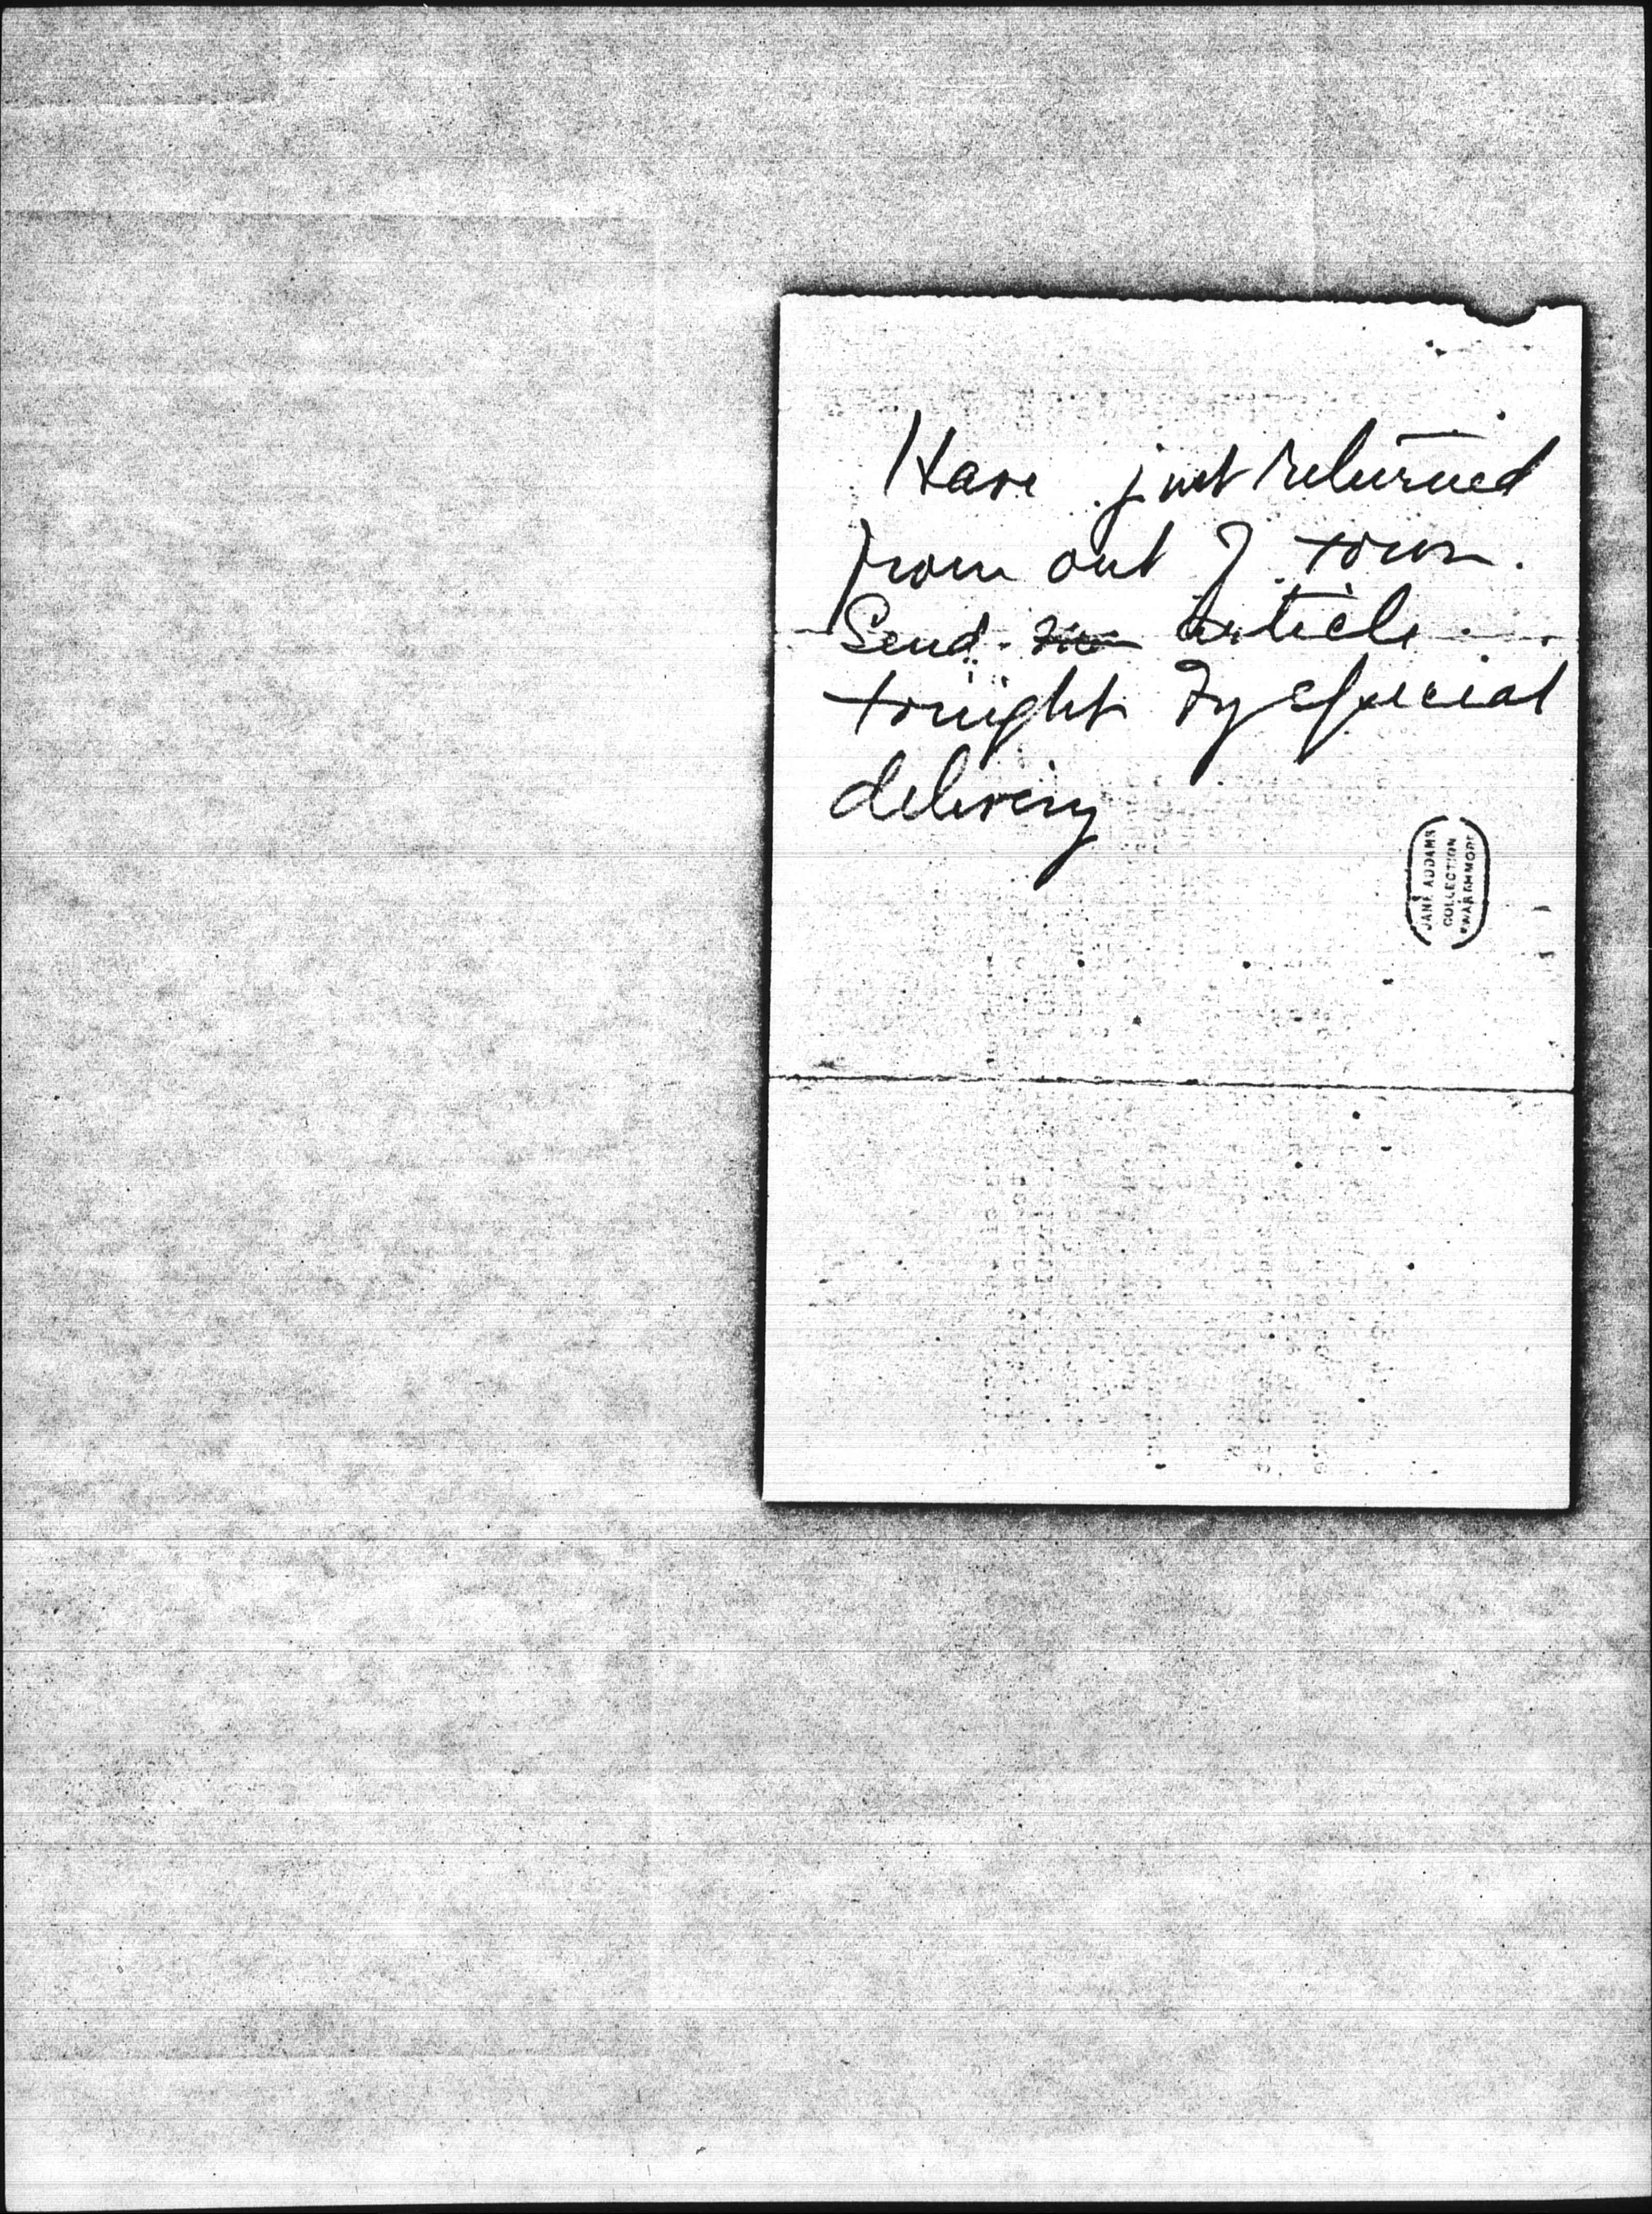 Have just returned
from out of town.
Send article
tonight by special
delivery
JANE ADDAMS
COLLECTION
SWARTHMORE